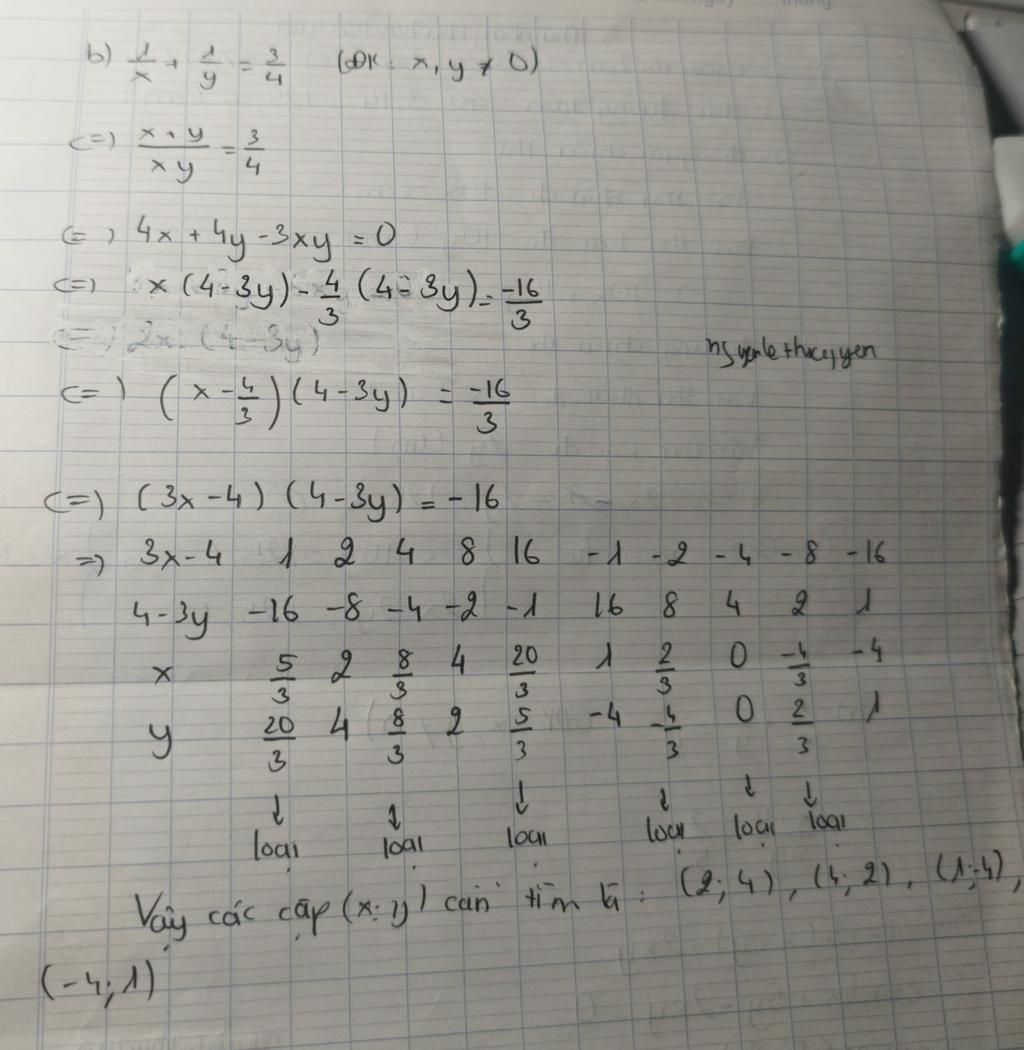 b) 1/x + 1/y = 3/4 (ĐK: x, y ≠ 0)
<=> (x + y)/(xy) = 3/4
<=> 4x + 4y - 3xy = 0
<=> x (4 - 3y) - 4/3 (4 - 3y) = -16/3
<=> 2x (4 - 3y)
<=> (x - 4/3) (4 - 3y) = -16/3
<=> (3x - 4) (4 - 3y) = -16
=> 3x - 4 1 2 4 8 16 -1 -2 -4 -8 -16
4 - 3y -16 -8 -4 -2 -1 16 8 4 2 1
x 5/3 2 8/3 4 20/3 1 2/3 0 -4/3 -4
y 20/3 4 8/3 2 5/3 -4 -4/3 0 2/3 1
↓ ↓ ↓ ↓ ↓ ↓
loại loại loại loại loại loại
Vậy các cặp (x; y) cần tìm là : (2; 4), (4; 2), (1; -4),
(-4; 1)